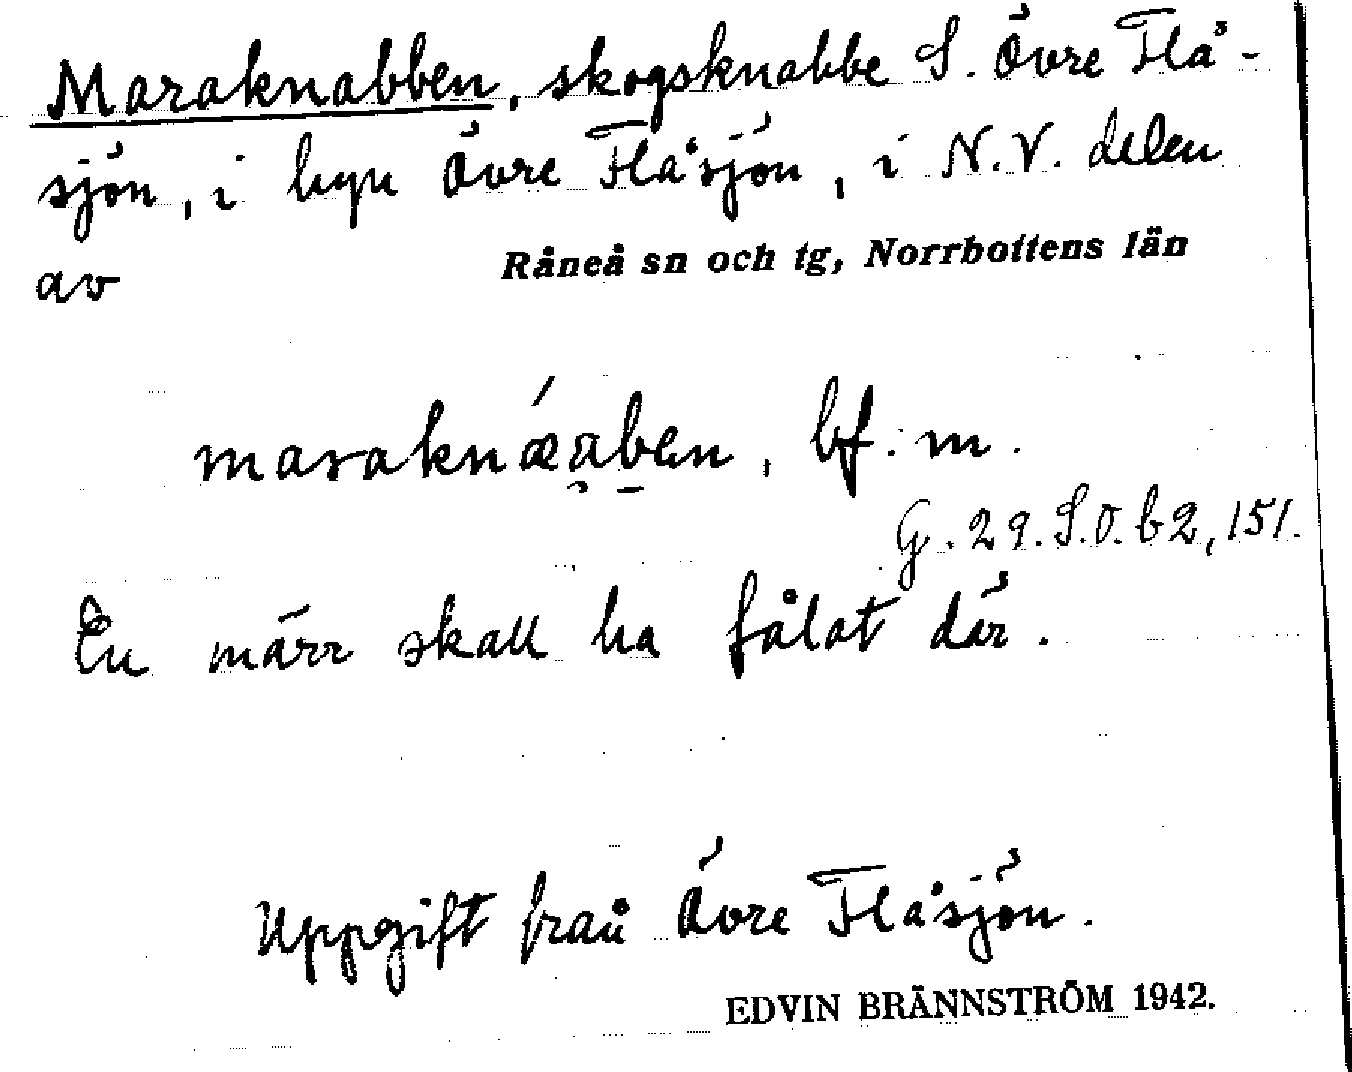 Maraknabben, skogsknabbe S. Övre Flå-
sjön, i byn Övre Flåsjön, i N.V. delen
av Råneå sn och tg, Norrbottens län
maraknǽa̡ḇen, bf. m.
G. 29. S.O. b2, 151.
En märr skall ha fålat där.
Uppgift från Övre Flåsjön.
EDVIN BRÄNNSTRÖM 1942.